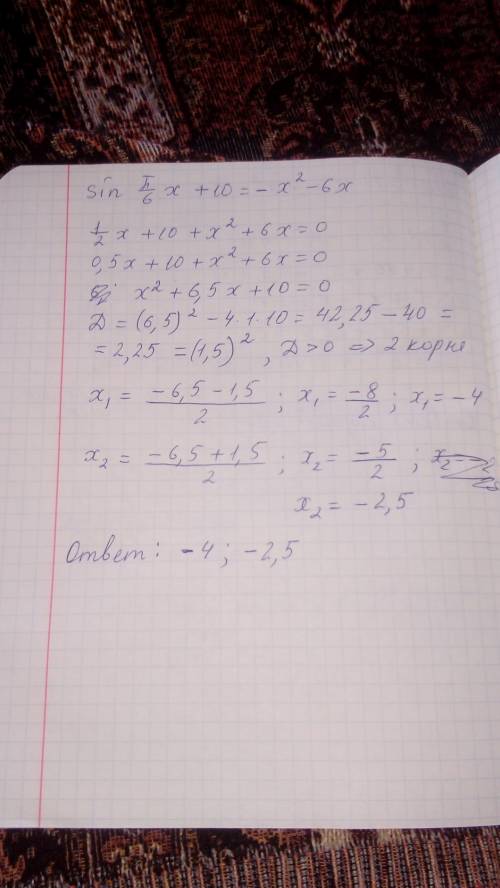 sin π/6 x + 10 = - x² - 6x
1/2 x + 10 + x² + 6x = 0
0,5x + 10 + x² + 6x = 0
x² + 6,5x + 10 = 0
D = (6,5)² - 4·1·10 = 42,25 - 40 =
= 2,25 = (1,5)², D > 0 => 2 корня
x₁ = (-6,5 - 1,5)/2 ; x₁ = -8/2 ; x₁ = -4
x₂ = (-6,5 + 1,5)/2 ; x₂ = -5/2 ;
x₂ = -2,5
Ответ: -4 ; -2,5